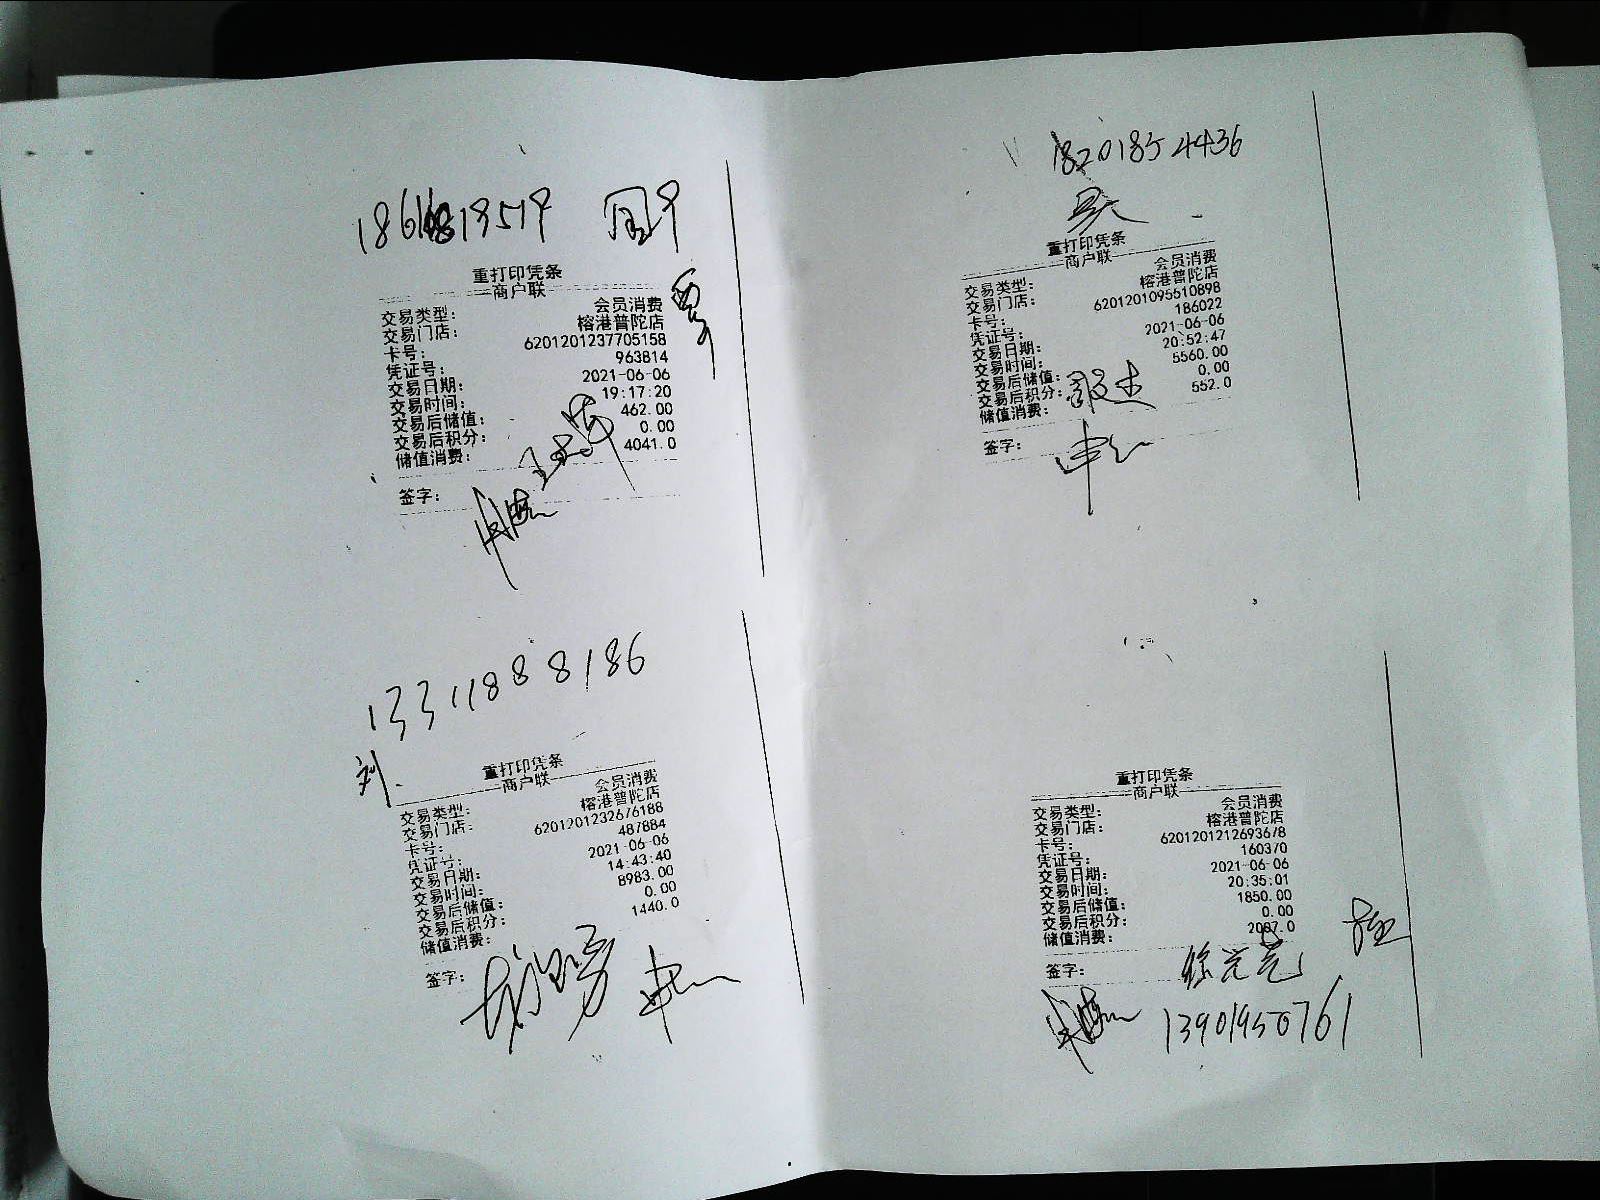 重打印凭条
商户联
交易类型： 会员消费
交易门店： 榕港普陀店
卡号： 6201201237705158
凭证号： 963814
交易日期： 2021-06-06
交易时间： 19:17:20
交易后储值： 462.00
交易后积分： 0.00
储值消费： 4041.0
签字：
18201854436
重打印凭条
商户联
交易类型： 会员消费
交易门店： 榕港普陀店
卡号： 6201201095510898
凭证号： 186022
交易日期： 2021-06-06
交易时间： 20:52:47
交易后储值： 5560.00
交易后积分： 0.00
储值消费： 552.0
签字：
13311888186
刘
重打印凭条
商户联
交易类型： 会员消费
交易门店： 榕港普陀店
卡号： 6201201232676188
凭证号： 487884
交易日期： 2021-06-06
交易时间： 14:43:40
交易后储值： 8983.00
交易后积分： 0.00
储值消费： 1440.0
签字：
重打印凭条
商户联
交易类型： 会员消费
交易门店： 榕港普陀店
卡号： 6201201212693678
凭证号： 160370
交易日期： 2021-06-06
交易时间： 20:35:01
交易后储值： 1850.00
交易后积分： 0.00
储值消费： 2007.0
签字：
13901950761